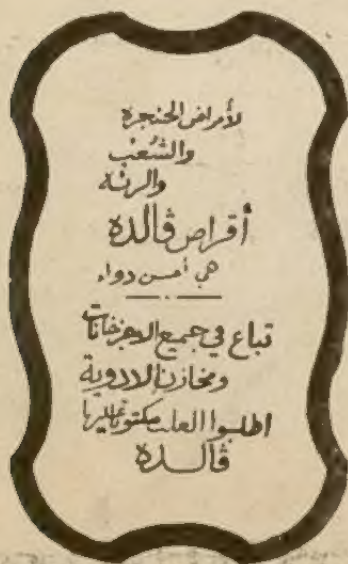 لأمراض الحنجرة
والشُعب
والرئة
أقراص ڤالدة
هي أحسن دواء
تباع في جميع الاجزخانات
ومخازن الادوية
اطلبوا العلب مكتوبا عليها
ڤالدة